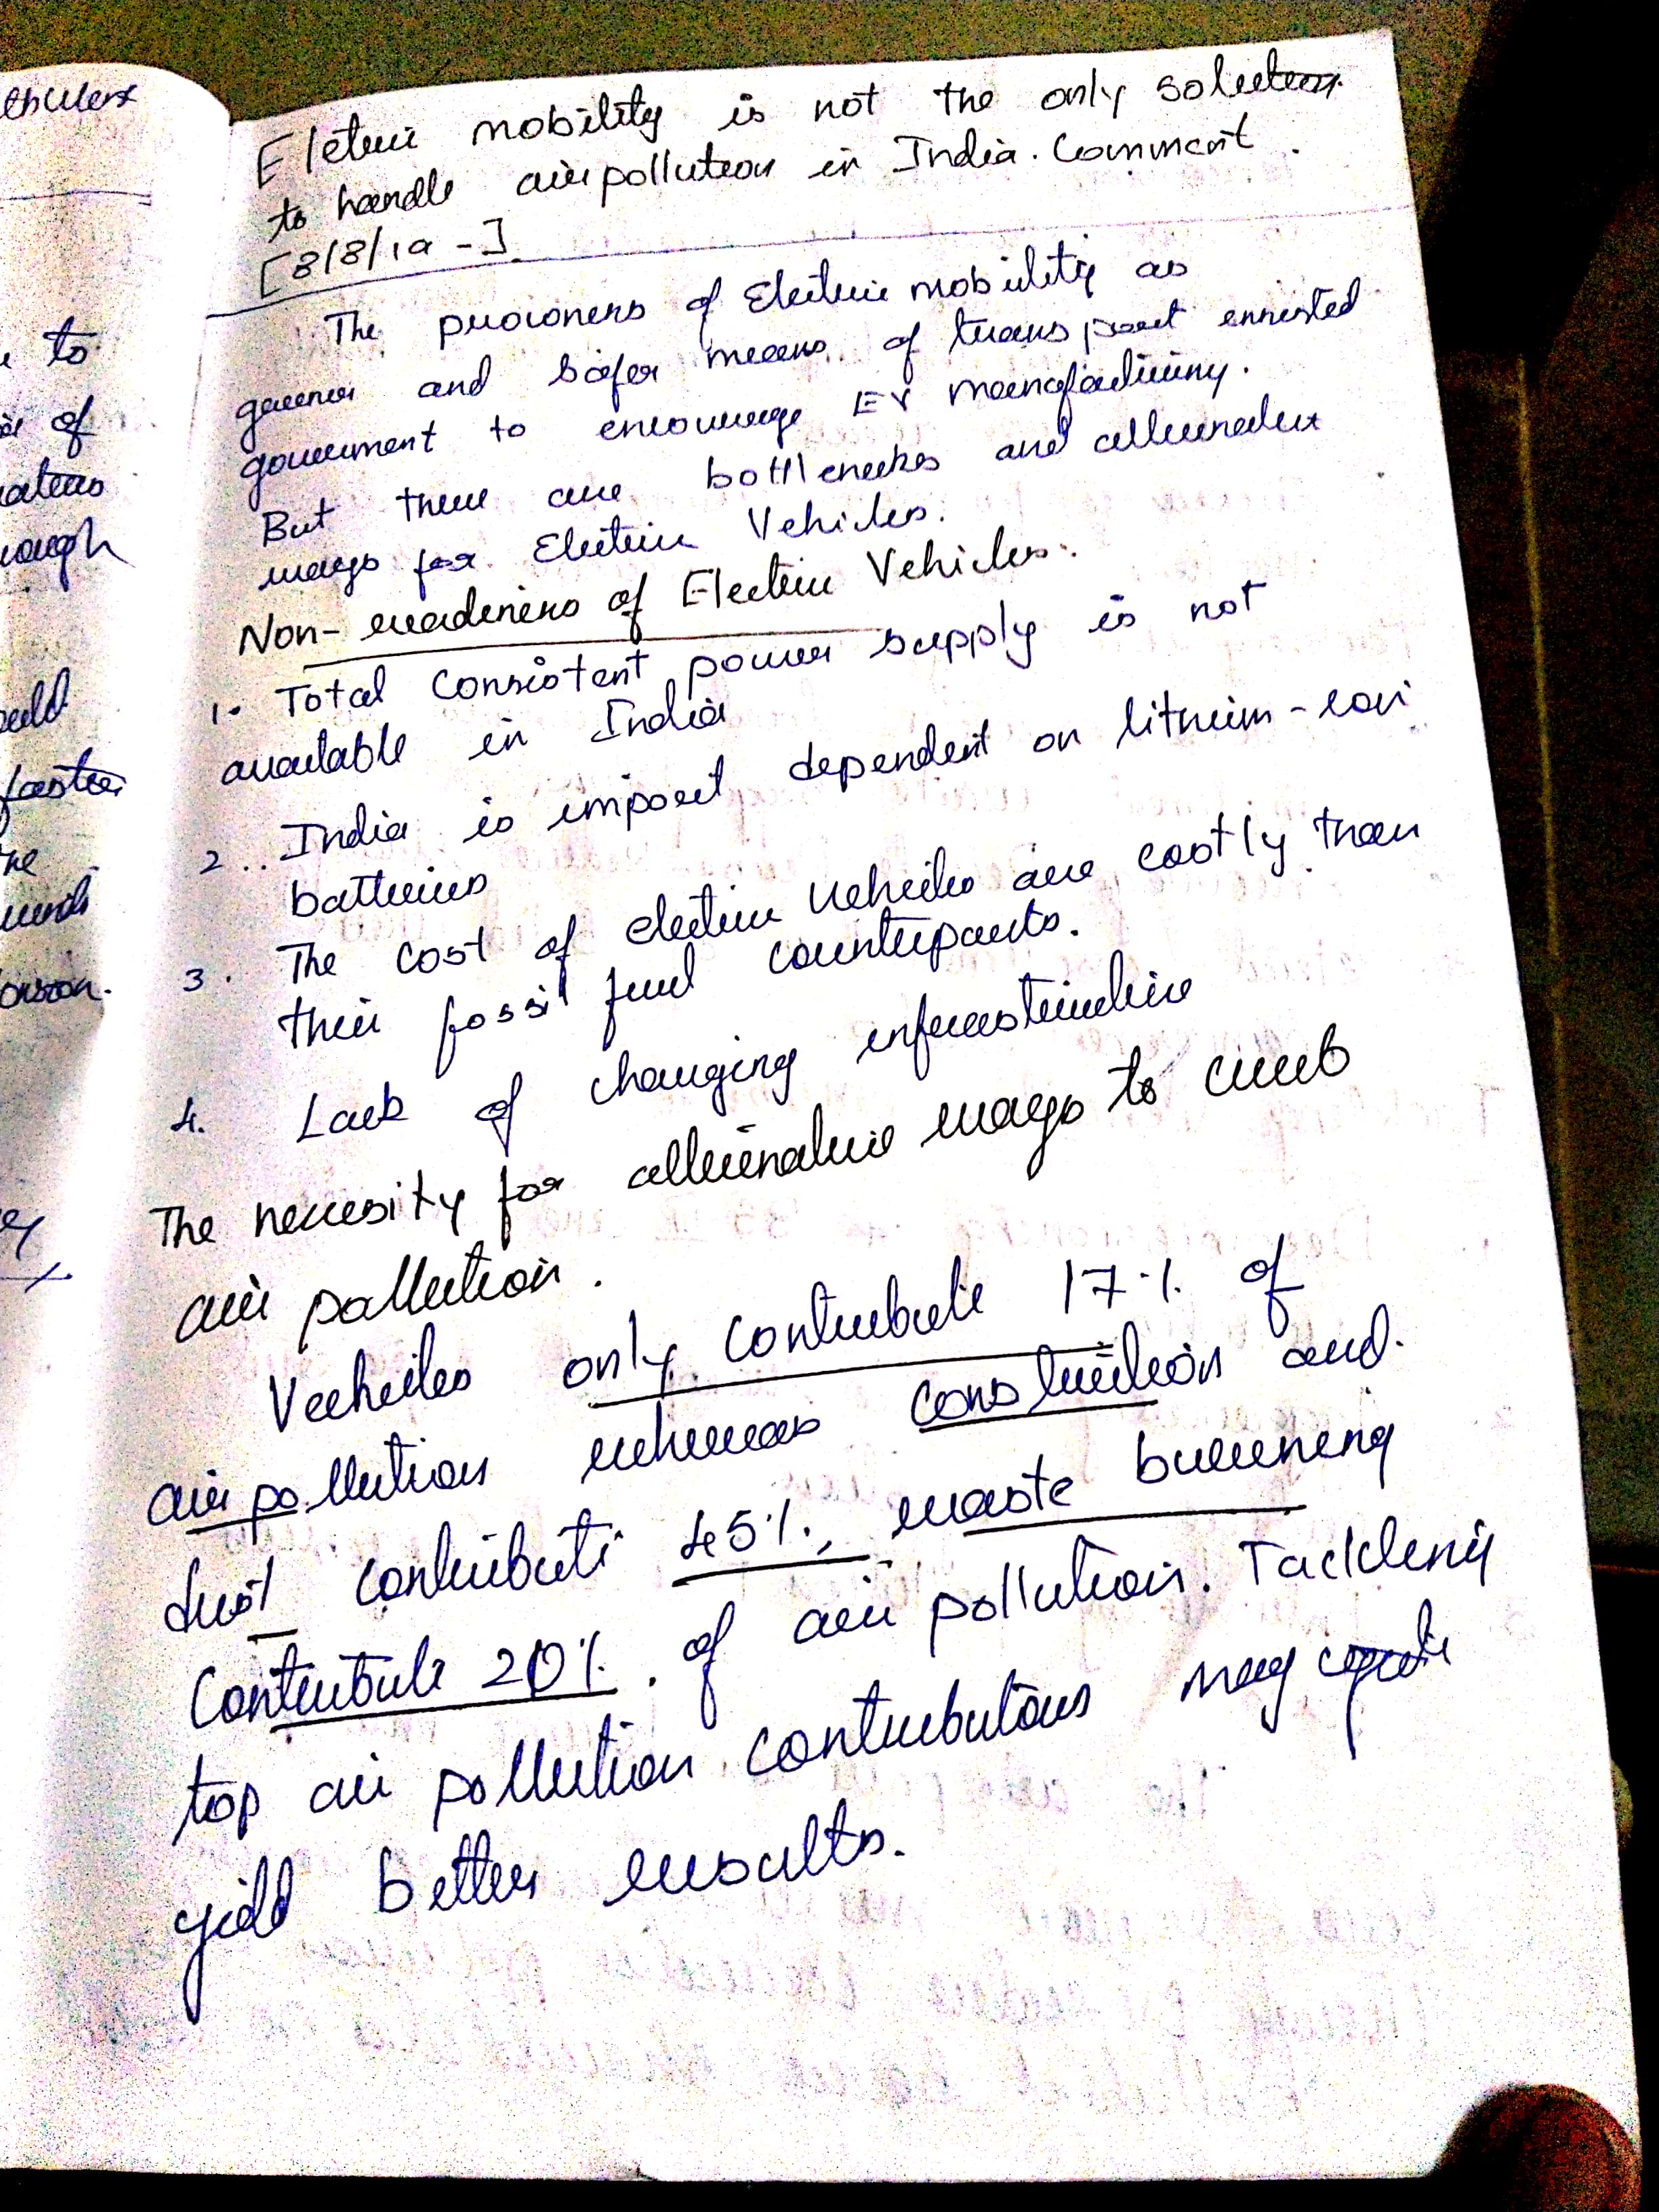 Eletric mobility is not the only solution
to handle air pollution in India. Comment.
[8/8/19 - ]
The of Electric mobility as
greener and safer means of transport
government to encourage EV manufacturing.
But there are bottlenecks and alternate
ways for Electric Vehicles.
Non-readiness of Electric Vehicles.
1. Total consistent power supply is not
available in India
2. India is import dependent on lithium-ion
batteries
3. The cost of electric vehicles are costly than
their fossil fuel counterparts.
4. Lack of charging infrastructure
The necessity for alternative ways to curb
air pollution.
Veehicles only contribute 17% of
air pollution whereas construction and
dust contribute 45%, waste burning
contribute 20% of air pollution. Tackling
top air pollution contributors may
yield better results.
to
of
ough